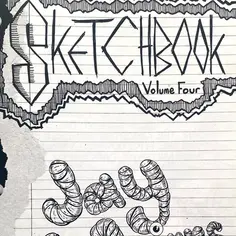 SKETCHBOOK
Volume Four
Jay